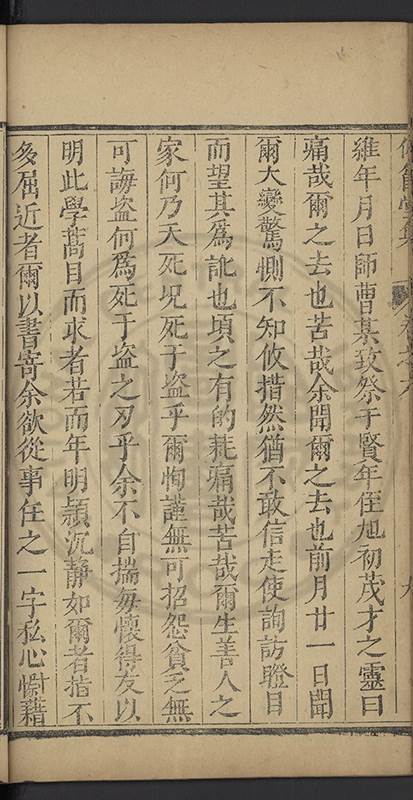 維年月日師曹某致祭于賢年侄旭初茂才之靈曰
痛哉爾之去也苦哉余聞爾之去也前月廿一日聞
爾大變驚惻不知攸措然猶不敢信走使詢訪瞪目
而望其為訛也頃之有的耗痛哉苦哉爾生善人之
家何乃夭死況死于盜乎爾恂謹無可招怨貧乏無
可誨盜何為死于盜之刃乎余不自揣每懷得友以
明此學蒿目而求者若而年明穎沉靜如爾者指不
多屈近者爾以書寄余欲從事任之一字私心慚藉